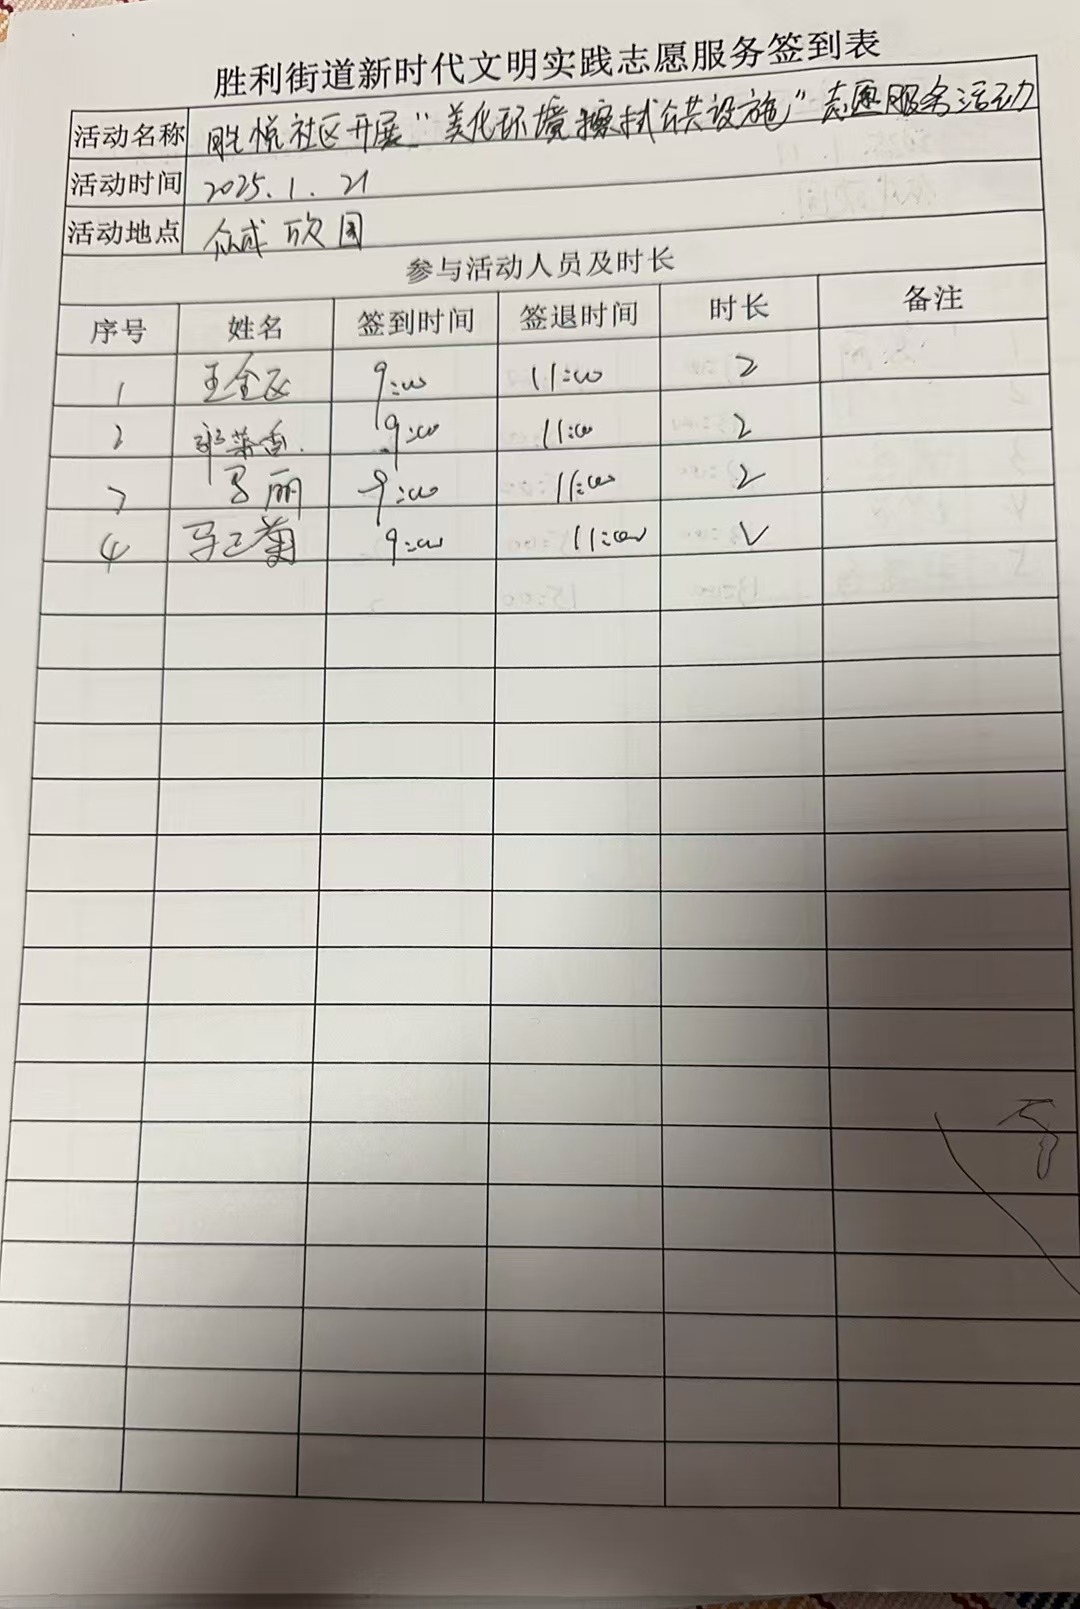 胜利街道新时代文明实践志愿服务签到表
活动名称 胜悦社区开展“美化环境擦拭公共设施”志愿服务活动
活动时间 2025.1.21
活动地点 众成欣园
参与活动人员及时长
序号 姓名 签到时间 签退时间 时长 备注
1 王金 9:00 11:00 2
2 菜香 9:00 11:00 2
3 马丽 9:00 11:00 2
4 马卫菊 9:00 11:00 2